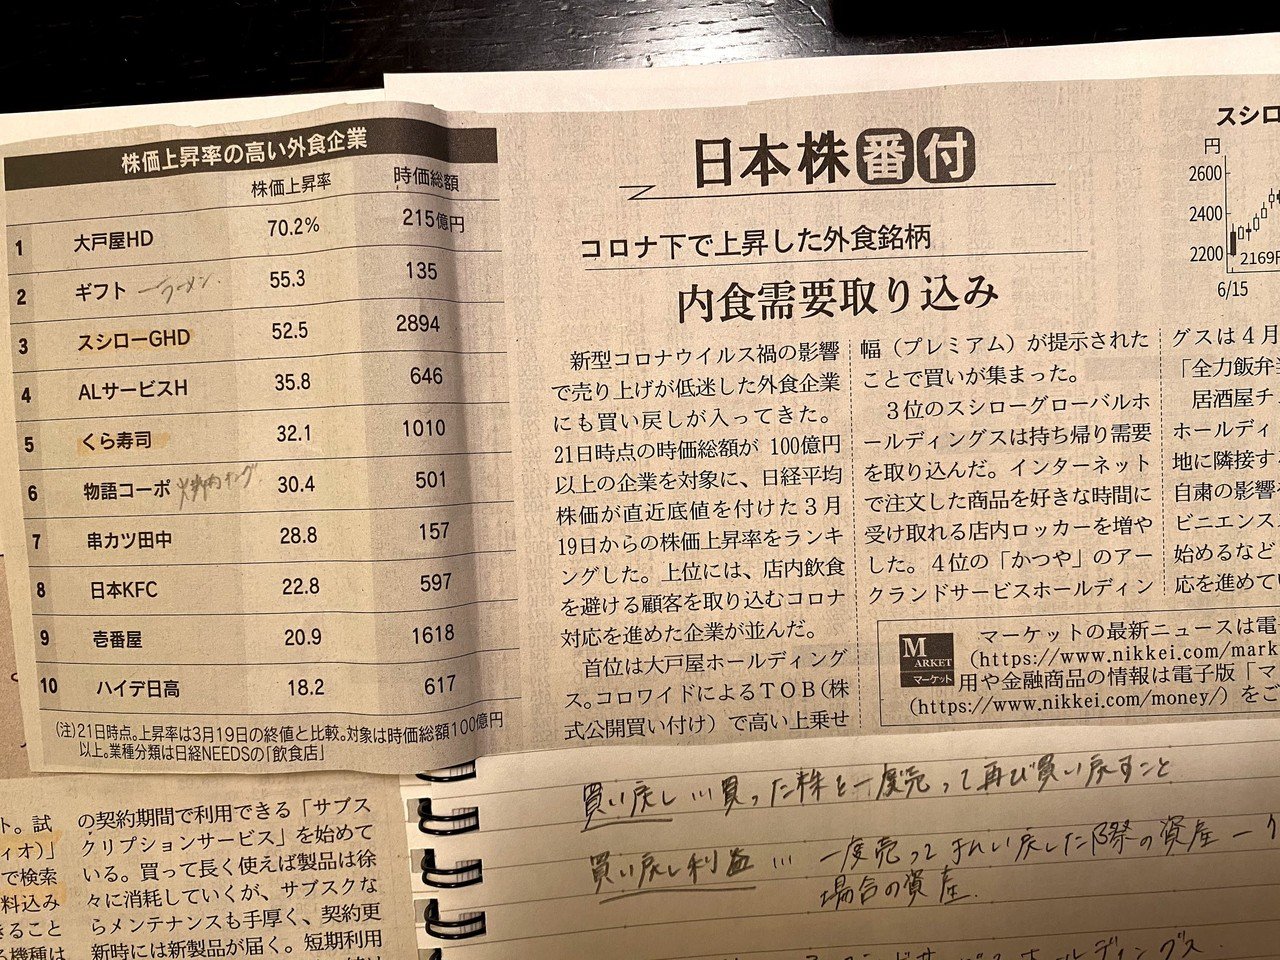 株価上昇率の高い外食企業
株価上昇率 時価総額
1 大戸屋HD 70.2% 215億円
2 ギフト ーラーメン 55.3 135
3 スシローGHD 52.5 2894
4 ALサービスH 35.8 646
5 くら寿司 32.1 1010
6 物語コーポ 30.4 501
7 串カツ田中 28.8 157
8 日本KFC 22.8 597
9 壱番屋 20.9 1618
10 ハイデ日高 18.2 617
(注)21日時点。上昇率は3月19日の終値と比較。対象は時価総額100億円
以上。業種分類は日経NEEDSの「飲食店」
日本株番付
コロナ下で上昇した外食銘柄
内食需要取り込み
新型コロナウイルス禍の影響
で売り上げが低迷した外食企業
にも買い戻しが入ってきた。
21日時点の時価総額が100億円
以上の企業を対象に、日経平均
株価が直近底値を付けた3月
19日からの株価上昇率をランキ
ングした。上位には、店内飲食
を避ける顧客を取り込むコロナ
対応を進めた企業が並んだ。
首位は大戸屋ホールディング
ス。コロワイドによるTOB(株
式公開買い付け)で高い上乗せ
幅(プレミアム)が提示された
ことで買いが集まった。
3位のスシローグローバルホ
ールディングスは持ち帰り需要
を取り込んだ。インターネット
で注文した商品を好きな時間に
受け取れる店内ロッカーを増や
した。4位の「かつや」のアー
クランドサービスホールディン
グスは4月
「全力飯弁当
居酒屋チ
ホールディ
地に隣接す
自粛の影響
ビニエンス
始めるなど
応を進めてい
スシロ
円
2600
2400
2200
2169
6/15
MARKET
マーケット
マーケットの最新ニュースは電
(https://www.nikkei.com/mark
用や金融商品の情報は電子版「マ
(https://www.nikkei.com/money/)をご
ト。試
ィオ)」
で検索
料込み
きること
る機種は
の契約期間で利用できる「サブス
クリプションサービス」を始めて
いる。買って長く使えば製品は徐
々に消耗していくが、サブスクな
らメンテナンスも手厚く、契約更
新時には新製品が届く。短期利用
買い戻し…買った株を一度売って再び買い戻すこと
買い戻し利益…一度売って買い戻した際の資産ー
場合の資産.